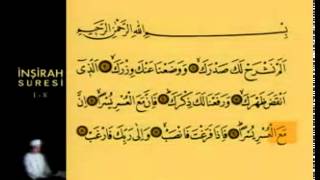 İNŞİRAH
SURESİ
1 - 8
بِسْمِ اللّٰهِ الرَّحْمٰنِ الرَّحِيمِ
اَلَمْ نَشْرَحْ لَكَ صَدْرَكَ ۝ وَوَضَعْنَا عَنْكَ وِزْرَكَ ۝ اَلَّذِى
اَنْقَضَ ظَهْرَكَ ۝ وَرَفَعْنَا لَكَ ذِكْرَكَ ۝ فَاِنَّ مَعَ الْعُسْرِ يُسْرًا ۝ اِنَّ
مَعَ الْعُسْرِ يُسْرًا ۝ فَاِذَا فَرَغْتَ فَانْصَبْ ۝ وَاِلٰى رَبِّكَ فَارْغَبْ ۝